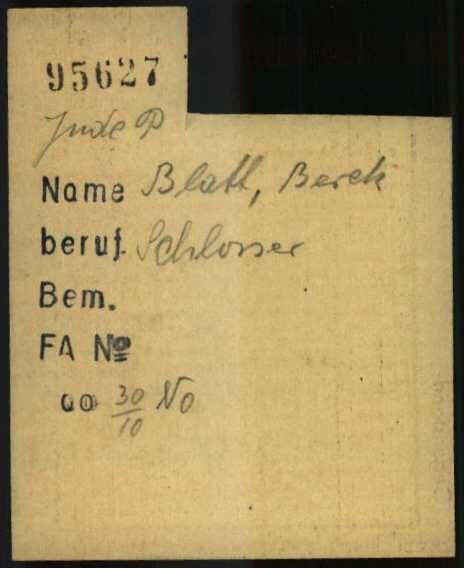 95627
Jude P
Name Blatt, Berek
beruf. Schlosser
Bem.
FA Nº
30/10 No